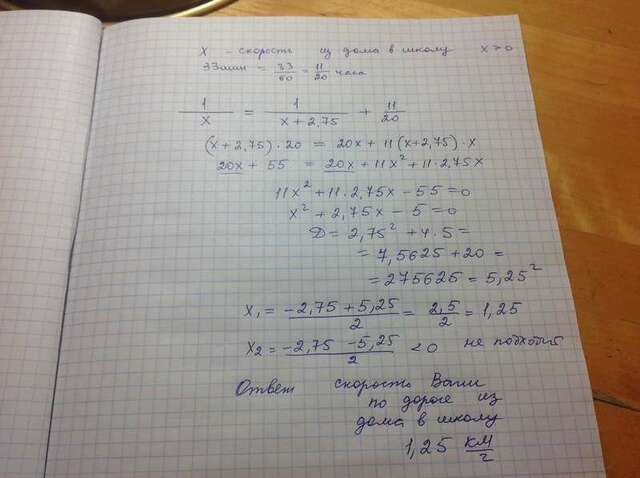 x - скорость из дома в школу x > 0
33 мин = 33/60 = 11/20 часа
1/x = 1/(x + 2,75) + 11/20
(x + 2,75) · 20 = 20x + 11(x + 2,75) · x
20x + 55 = 20x + 11x² + 11 · 2,75x
11x² + 11 · 2,75x - 55 = 0
x² + 2,75x - 5 = 0
D = 2,75² + 4 · 5 =
= 7,5625 + 20 =
= 275625 = 5,25²
x₁ = (-2,75 + 5,25)/2 = 2,5/2 = 1,25
x₂ = (-2,75 - 5,25)/2 < 0 не подходит
Ответ скорость Вани
по дороге из
дома в школу
1,25 км/г